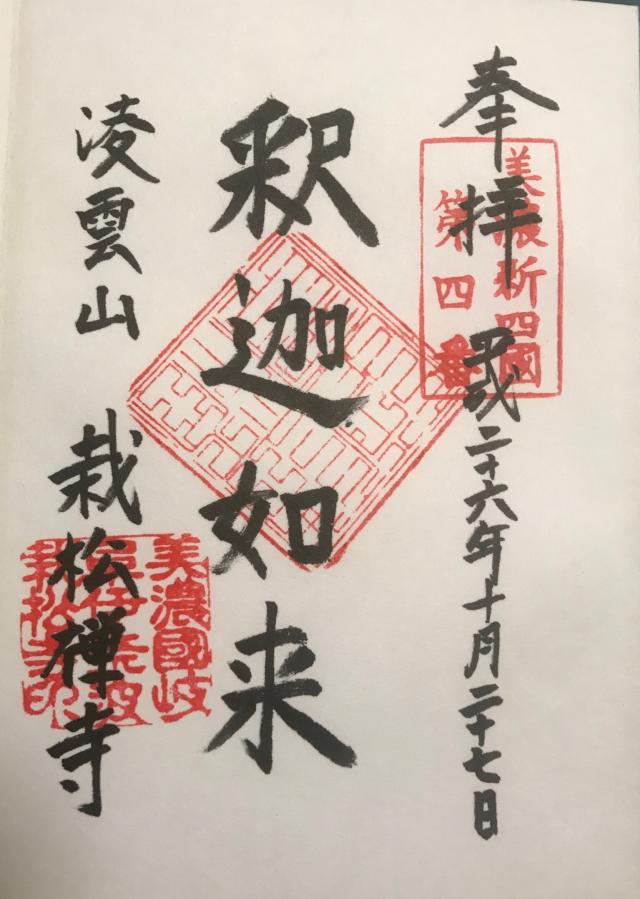 奉拝
二十六年十月二十七日
美濃新四國
第四番
釈迦如来
凌雲山 栽松禅寺
美濃國岐